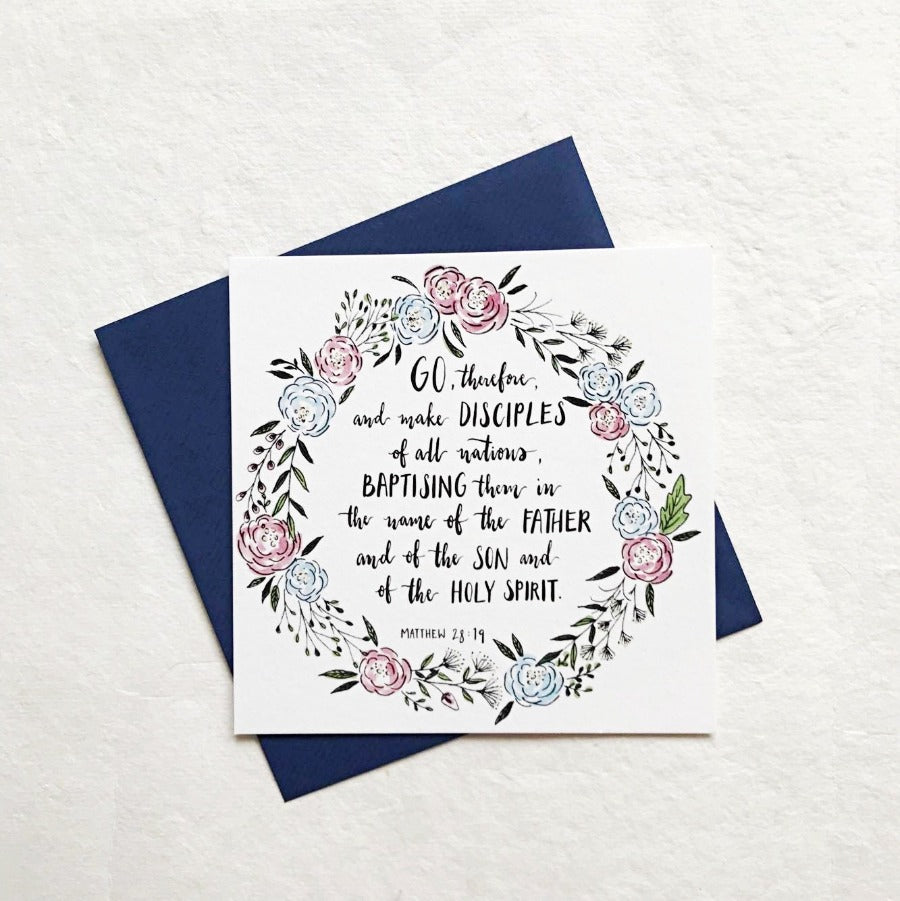 GO, therefore,
and make DISCIPLES
of all nations,
BAPTISING them in
the name of the FATHER
and of the SON and
of the HOLY SPIRIT.
MATTHEW 28:19